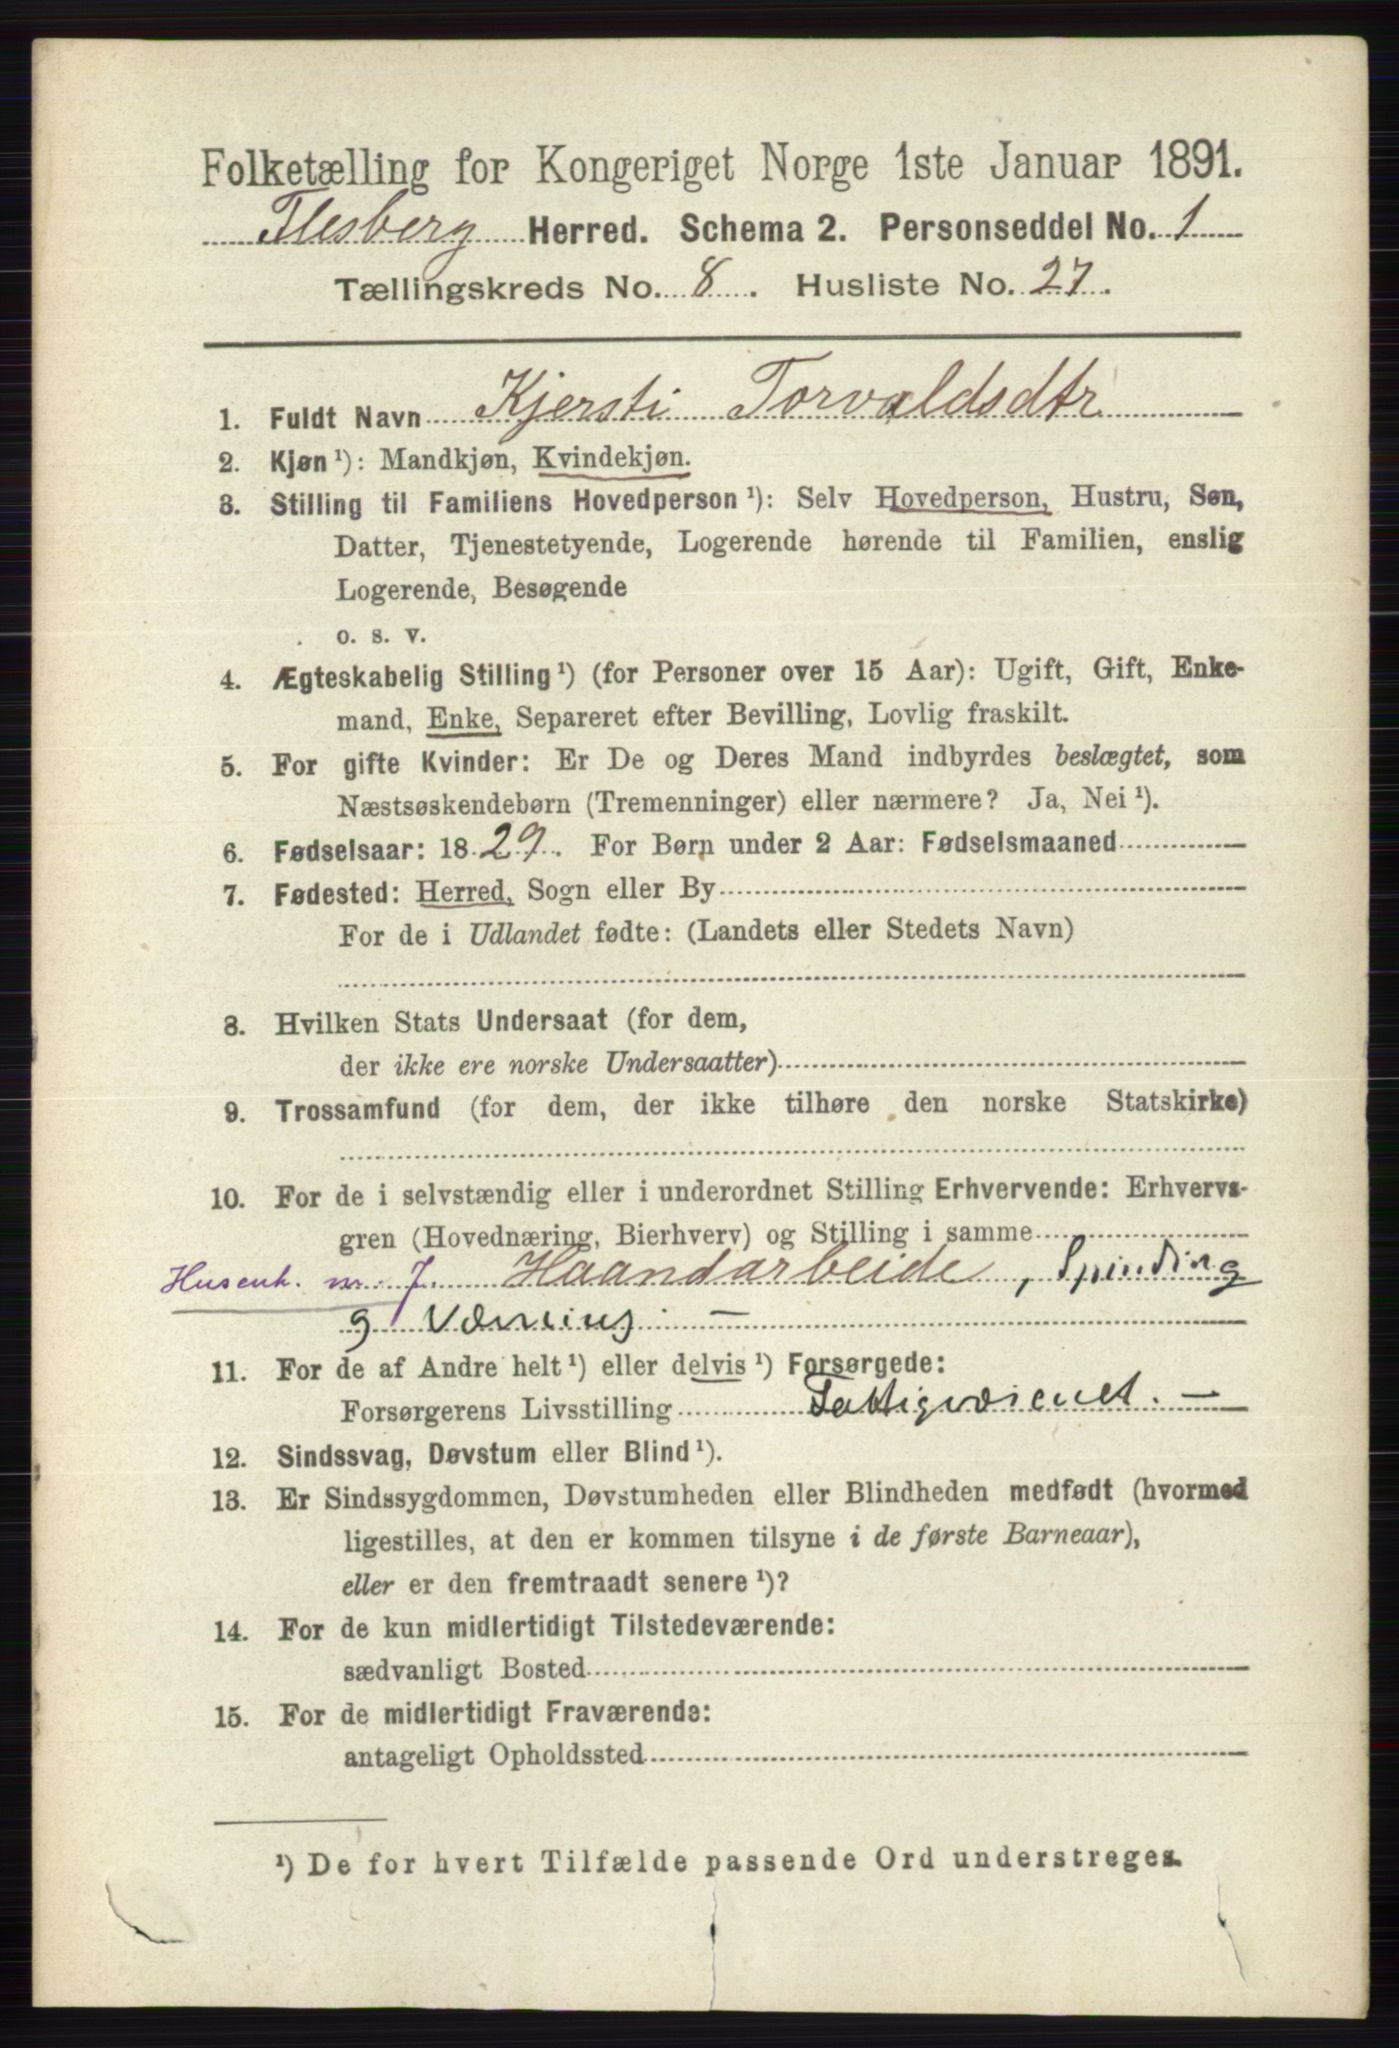 Folketælling for Kongeriget Norge 1ste Januar 1891.
Flesberg Herred. Schema 2. Personseddel No. 1
Tællingskreds No. 8. Husliste No. 27.
1. Fuldt Navn Kjersti Torvaldsdtr
2. Kjøn ¹): Mandkjøn, Kvindekjøn.
3. Stilling til Familiens Hovedperson ¹): Selv Hovedperson, Hustru, Søn,
Datter, Tjenestetyende, Logerende hørende til Familien, enslig
Logerende, Besøgende
o. s. v.
4. Ægteskabelig Stilling ¹) (for Personer over 15 Aar): Ugift, Gift, Enke-
mand, Enke, Separeret efter Bevilling, Lovlig fraskilt.
5. For gifte Kvinder: Er De og Deres Mand indbyrdes beslægtet, som
Næstsøskendebørn (Tremenninger) eller nærmere? Ja, Nei ¹).
6. Fødselsaar: 1829. For Børn under 2 Aar: Fødselsmaaned
7. Fødested: Herred, Sogn eller By
For de i Udlandet fødte: (Landets eller Stedets Navn)
8. Hvilken Stats Undersaat (for dem,
der ikke ere norske Undersaatter)
9. Trossamfund (for dem, der ikke tilhøre den norske Statskirke)
10. For de i selvstændig eller i underordnet Stilling Erhvervende: Erhvervs-
gren (Hovednæring, Bierhverv) og Stilling i samme
Husenh. nr. 7. Haandarbeide, Spinding
g Væning. —
11. For de af Andre helt ¹) eller delvis ¹) Forsørgede:
Forsørgerens Livsstilling Fattigvæsenet. —
12. Sindssvag, Døvstum eller Blind ¹).
13. Er Sindssygdommen, Døvstumheden eller Blindheden medfødt (hvormed
ligestilles, at den er kommen tilsyne i de første Barneaar),
eller er den fremtraadt senere ¹)?
14. For de kun midlertidigt Tilstedeværende:
sædvanligt Bosted
15. For de midlertidigt Fraværende:
antageligt Opholdssted
¹) De for hvert Tilfælde passende Ord understreges.